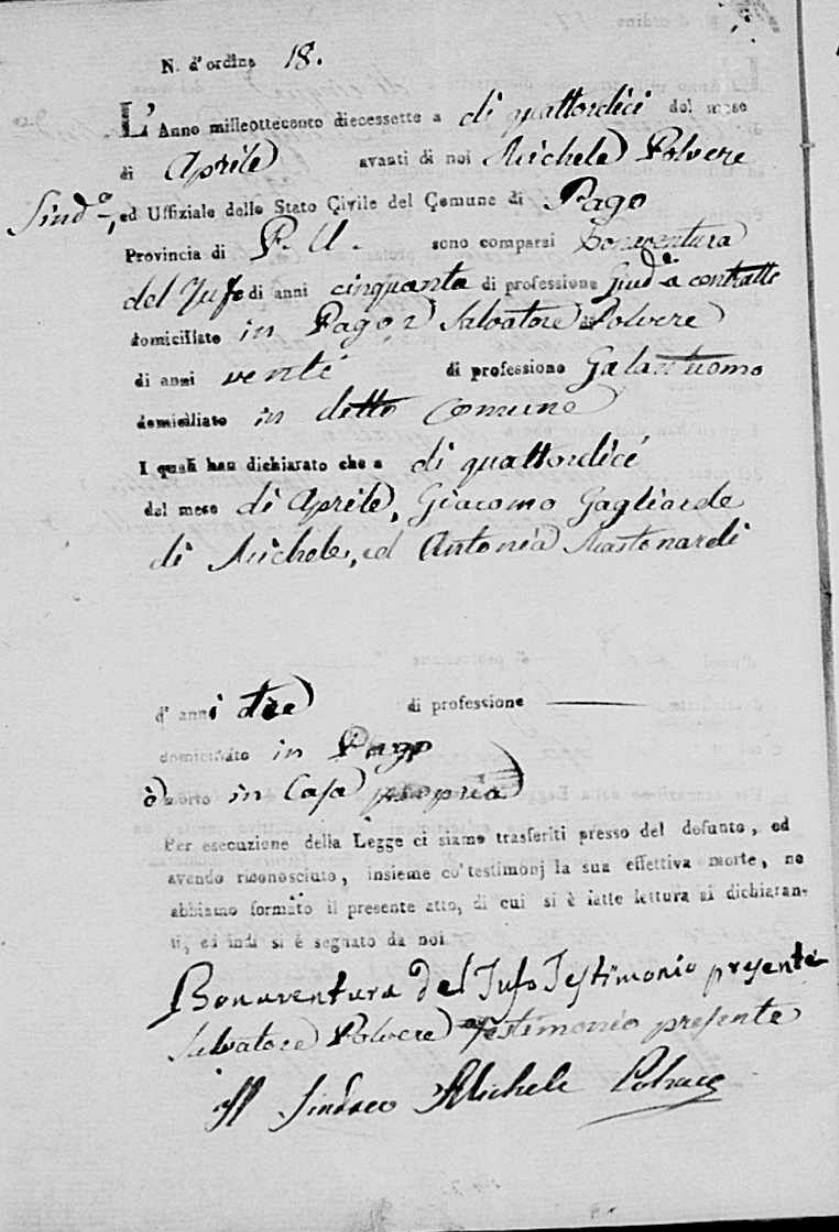 N. d'ordine 18.
L'Anno milleottecento diecessette a di quattordici del mese
di Aprile avanti di noi Michele Polvere
Sind.o, ed Uffiziale dello Stato Civile del Comune di Pago
Provincia di P. U. sono comparsi Bonaventura
del Tufo di anni cinquanta di professione Giud.e a contratti
domiciliato in Pago, e Salvatore Polvere
di anni venti di professione Galantuomo
domiciliato in detto Comune
I quali han dichiarato che a di quattordici
del mese di Aprile, Giacomo Gagliarde
di Michele, ed Antonia Mastonardi
d' anni tre di professione
domiciliato in Pago
è morto in Casa propria
Per esecuzione della Legge ci siamo trasferiti presso del defunto, ed
avendo riconosciuto, insieme co' testimonj la sua effettiva morte, ne
abbiamo formato il presente atto, di cui si è fatte lettura ai dichiaran-
ti, ed indi si è segnato da noi
Bonaventura Del Tufo Testimonio presente
Salvatore Polvere Testimonio presente
Il Sindaco Michele Polvere